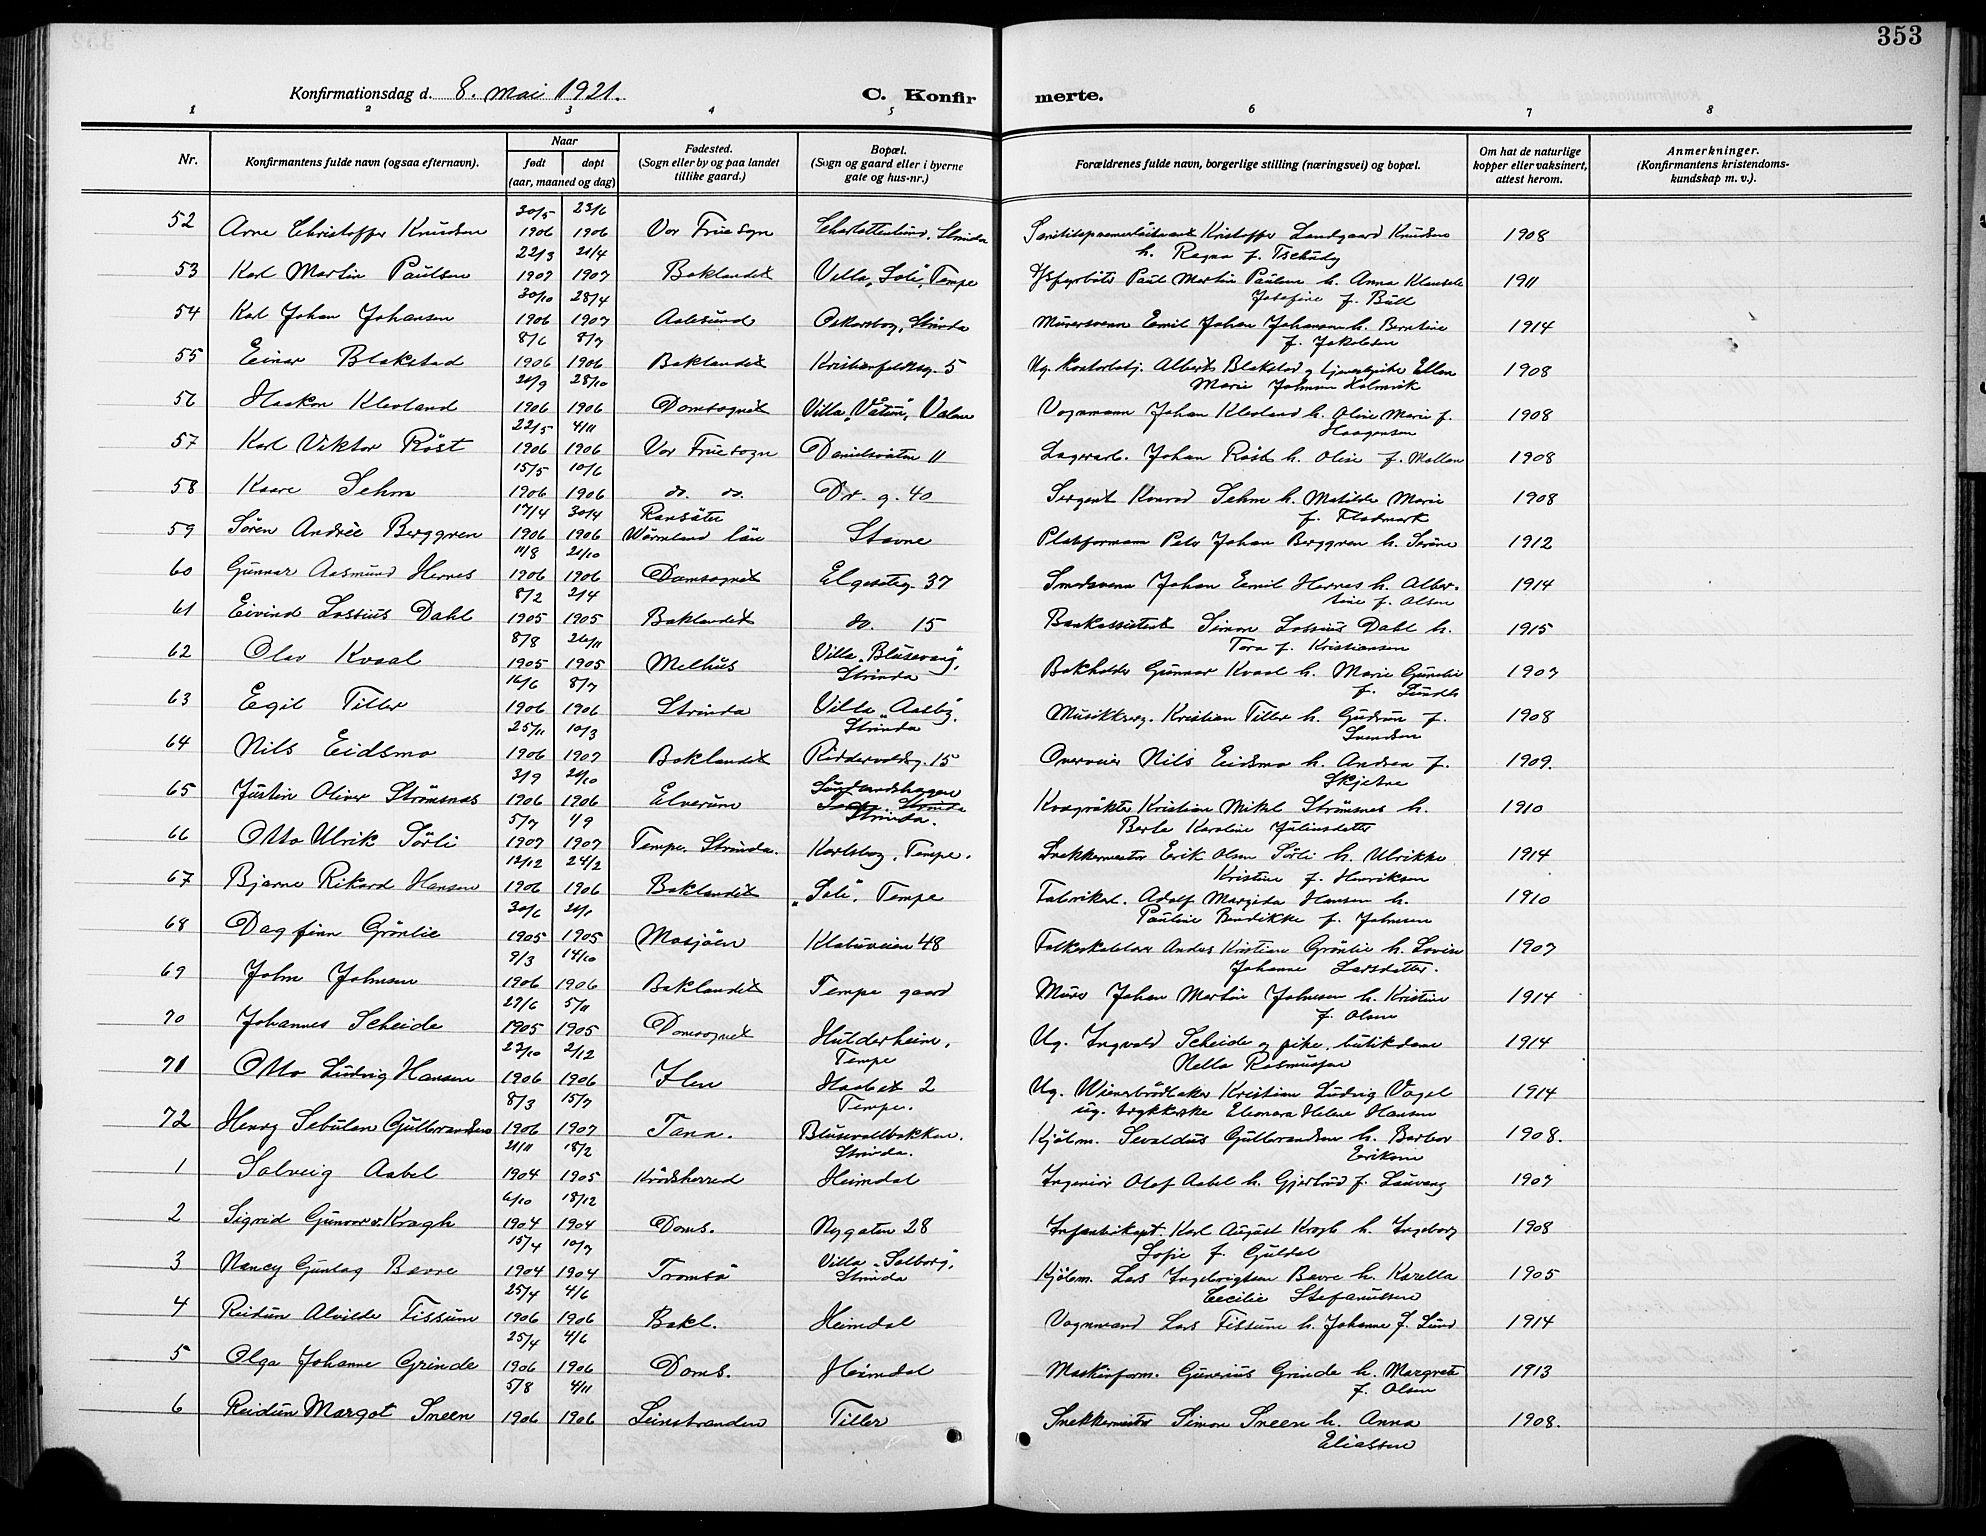 353
Konfirmationsdag d. 8. mai 1921.
C. Konfirmerte.
1 2 3 4 5 6 7 8
Nr.
Konfirmantens fulde navn (ogsaa efternavn).
Naar
født
døpt
(aar, maaned og dag)
Fødested.
(Sogn eller by og paa landet
tillike gaard.)
Bopæl.
(Sogn og gaard eller i byerne
gate og hus-nr.)
Forældrenes fulde navn, borgerlige stilling (næringsvei) og bopæl.
Om hat de naturlige
kopper eller vaksinert,
attest herom.
Anmerkninger.
(Konfirmantens kristendoms-
kundskap m. v.).
30/5 23/6
52 Arne Christoffer Knudsen 1906 1906 Vor Frue sogn Charlottenlund, Strinda Kristoffer Landgaard Knudsen 1908
h. Ragna f. Tschudy
22/3 21/4
53 Karl Martin Paulsen 1907 1907 Baklandet Villa "Soli", Tempe Paul Martin Paulsen h. Anna 1911
Josefine f. Bull
30/10 28/4
54 Karl Johan Johansen 1906 1907 Aalesund Oskarsborg, Strinda Murersvenn Emil Johan Johansen h. Berntine 1914
f. Jakobsen
8/6 8/7
55 Einar Blakstad 1906 1906 Baklandet Kristianfeldtsg. 5 Ug. kontorbetj. Albert Blakstad og Ellen 1908
Marie Johnsen Holmvik
21/9 28/10
56 Haakon Klevland 1906 1906 Domsognet Villa Vognmann Johan Klevland h. Oline Marie f. 1908
Haagensen
22/5 4/11
57 Karl Viktor Röst 1906 1906 Vor Frue sogn 11 Lagerarb. Johan Röst h. Olise f. Mollan 1908
15/5 10/6
58 Kaare Sehm 1906 1906 do. do. Dr. g. 40 Sergent Konrad Sehm h. Matilde Marie 1908
f. Fladmark
17/4 30/4 Ransäter
59 Sören Andrée Berggren 1906 1906 Wärmland län Stavne Platformann Peter Johan Berggren h. Serine 1912
11/8 21/10
60 Gunnar Aasmund Hernes 1906 1906 Domsognet Elgesetesg. 37 Smedsvenn Johan Emil Hernes h. Alber-
tine f. Olsen 1914
8/2 2/4
61 Eivind Lossius Dahl 1905 1905 Baklandet do. 15 Bankassistent Simon Lossius Dahl h. 1915
Tora f. Kristiansen
8/8 26/11
62 Olav Kvaal 1905 1905 Melhus Villa "Blusevang",
Strinda Bokholder Gunnar Kvaal h. Marie Gunelie 1907
16/6 8/7
63 Egil Tiller 1906 1906 Strinda Villa "Aasly",
Strinda Musikkserg. Kristian Tiller h. Gudrun f. 1908
Svendsen
25/11 10/3
64 Nils Eidsmo 1906 1907 Baklandet Riddervoldsg. 15 Overveier Nils Eidsmo h. Andrea f. 1909.
Skjetne
3/9 20/10
65 Justin Oliver Strömsnes 1906 1906 Elverum Strinda. Kvægrökter Kristian Mikal Strömsnes h. 1910
Berte Karoline Juliusdatter
5/7 1/9
66 Otto Ulrik Sörli 1907 1907 Tempe. Strinda. Karlsborg, Tempe. Snekkermester Erik Olsen Sörli h. Ulrikke 1914
Kristine f. Henriksen
12/12 24/2
67 Bjarne Rikard Hansen 1906 1906 Baklandet "Soli", Tempe Fabrikarb. Adolf Hansen h. 1910
Pauline Bendikke f. Johnsen
30/6 20/1
68 Dagfinn Grönlie 1905 1905 Mosjöen Klæbuveien 48 Kristian Grönlie h. Lovise 1907
Johanne Larsdatter.
9/3 14/10
69 John Johnsen 1906 1906 Baklandet Tempe gaard Murer Johan Martin Johnsen h. Kristine 1914
f. Olsen
29/6 5/11
70 Johannes Scheide 1905 1905 Domsognet Hulderheim,
Tempe Ug. Ingvald Scheide og pike, butikdame 1914
Nella Rasmussen
23/10 2/12
71 Otto Ludvig Hansen 1906 1906 Ilen Haabet 2
Tempe. Ug. Wienerbrödbaker Kristian Ludvig Vogel 1914
ug. trykkerske Eleonora Helene Hansen
8/3 15/7
72 Henry Sebulan Gulbrandsen 1906 1907 Tana. Blusevollbakken.
Strinda. Kjöbm. Sevaldus Gulbrandsen h. Barbor 1908.
21/11 18/2
1 Solveig Aabel 1904 1905 Krödsherred Heimdal Ingeniör Olaf Aabel h. Gjertrud f. Lauvang 1907
6/10 18/12
2 Sigrid Gunvor v. Kragh 1904 1904 Doms. Nygaten 28 Infanterikapt. Karl August Kragh h. Ingeborg 1908
Sofie f. Guldal
15/4 10/7
3 Nancy Gunlag Bavre 1904 1904 Tromsö Villa "Solborg",
Strinda Kjöbm. Lars Ingebrigtsen Bavre h. Karella 1905
Cecilie Stefanussen
25/4 4/6
4 Reidun Alvilde Tissum 1906 1906 Bakl. Heimdal Vognmand Lars Tissum h. Johanne f. Lund 1914
25/4 4/6
5 Olga Johanne Grinde 1906 1906 Doms. Heimdal Maskinform. Gunerius Grinde h. Margrete 1913
f. Olsen
5/8 4/11
6 Reidun Margot Sneen 1906 1906 Leinstranden Tiller Snekkermester Simon Sneen h. Anna 1908.
Eliassen